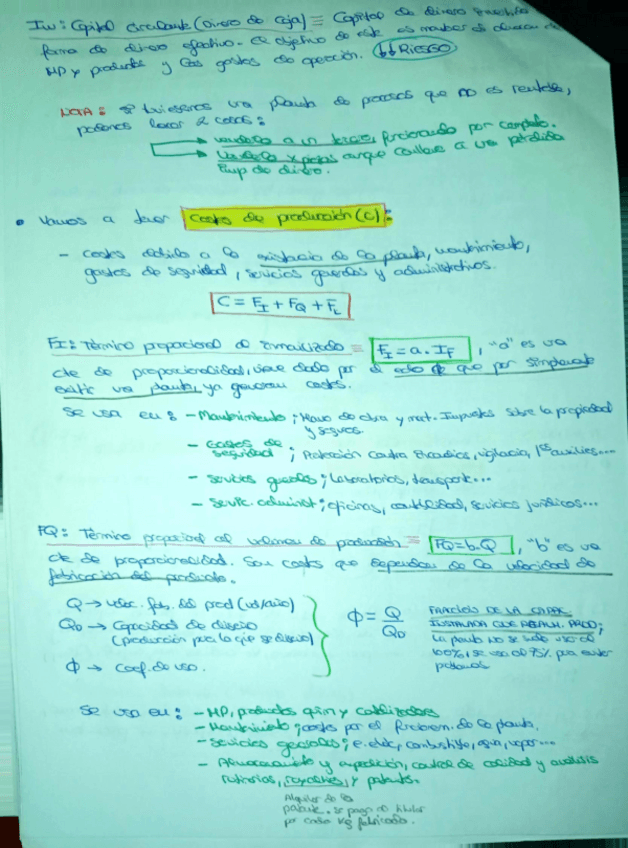 Iw: Capital circulante (Dinero de caja) ≡ Capital de dinero invertido
forma de dinero efectivo. El objetivo de este es
MP y productos y los gastos de operación. ↓↓ RIESGO
NOTA: si tuviésemos una planta de procesos que no es rentable,
podemos hacer 2 cosas:
venderla a un tercero, funcionando por completo.
venderla x piezas aunque conlleve a una pérdida
de dinero.
• Vamos a tener costes de producción (C):
- costes debido a la existencia de la planta, mantenimiento,
gastos de seguridad, servicios generales y administrativos.
C = FI + FQ + FL
FI: Término proporcional al inmovilizado ≡ FI = a · IF , "a" es una
cte de proporcionalidad, viene dado por el que por simplemente
existir una planta, ya generan costes.
Se usa en: - Mantenimiento; Mano de obra y mat. Impuestos sobre la propiedad
y seguros.
- Gastos de
seguridad ; Protección contra incendios, vigilancia, 1os auxilios...
- Servicios generales; laboratorios, transporte...
- Servic. administ; oficinas, contabilidad, servicios jurídicos...
FQ: Término proporcional al volumen de producción ≡ FQ = b·Q , "b" es una
cte de proporcionalidad. Son costes que dependen de la velocidad de
fabricación del producto.
Q → veloc. fab. del prod (ud/año)
Q0 → Capacidad de diseño
(producción para la que se diseñó)
Φ → Coef. de uso.
Φ = Q / Q0
FRACCIÓN DE LA CAPAC.
INSTALADA QUE PROD;
la planta no se suele usar al
100%, se usa al 95% para evitar
problemas
Se usa en: - MP, productos quim y catalizadores
- Mantenimiento; costes por el funcionam. de la planta.
- Servicios generales; e. eléc, combustible, agua, vapor...
- Almacenamiento y expedición, control de calidad y análisis
rutinarios, royalties, y patentes.
Alquiler de la
patente. Se paga al titular
por cada kg fabricado.